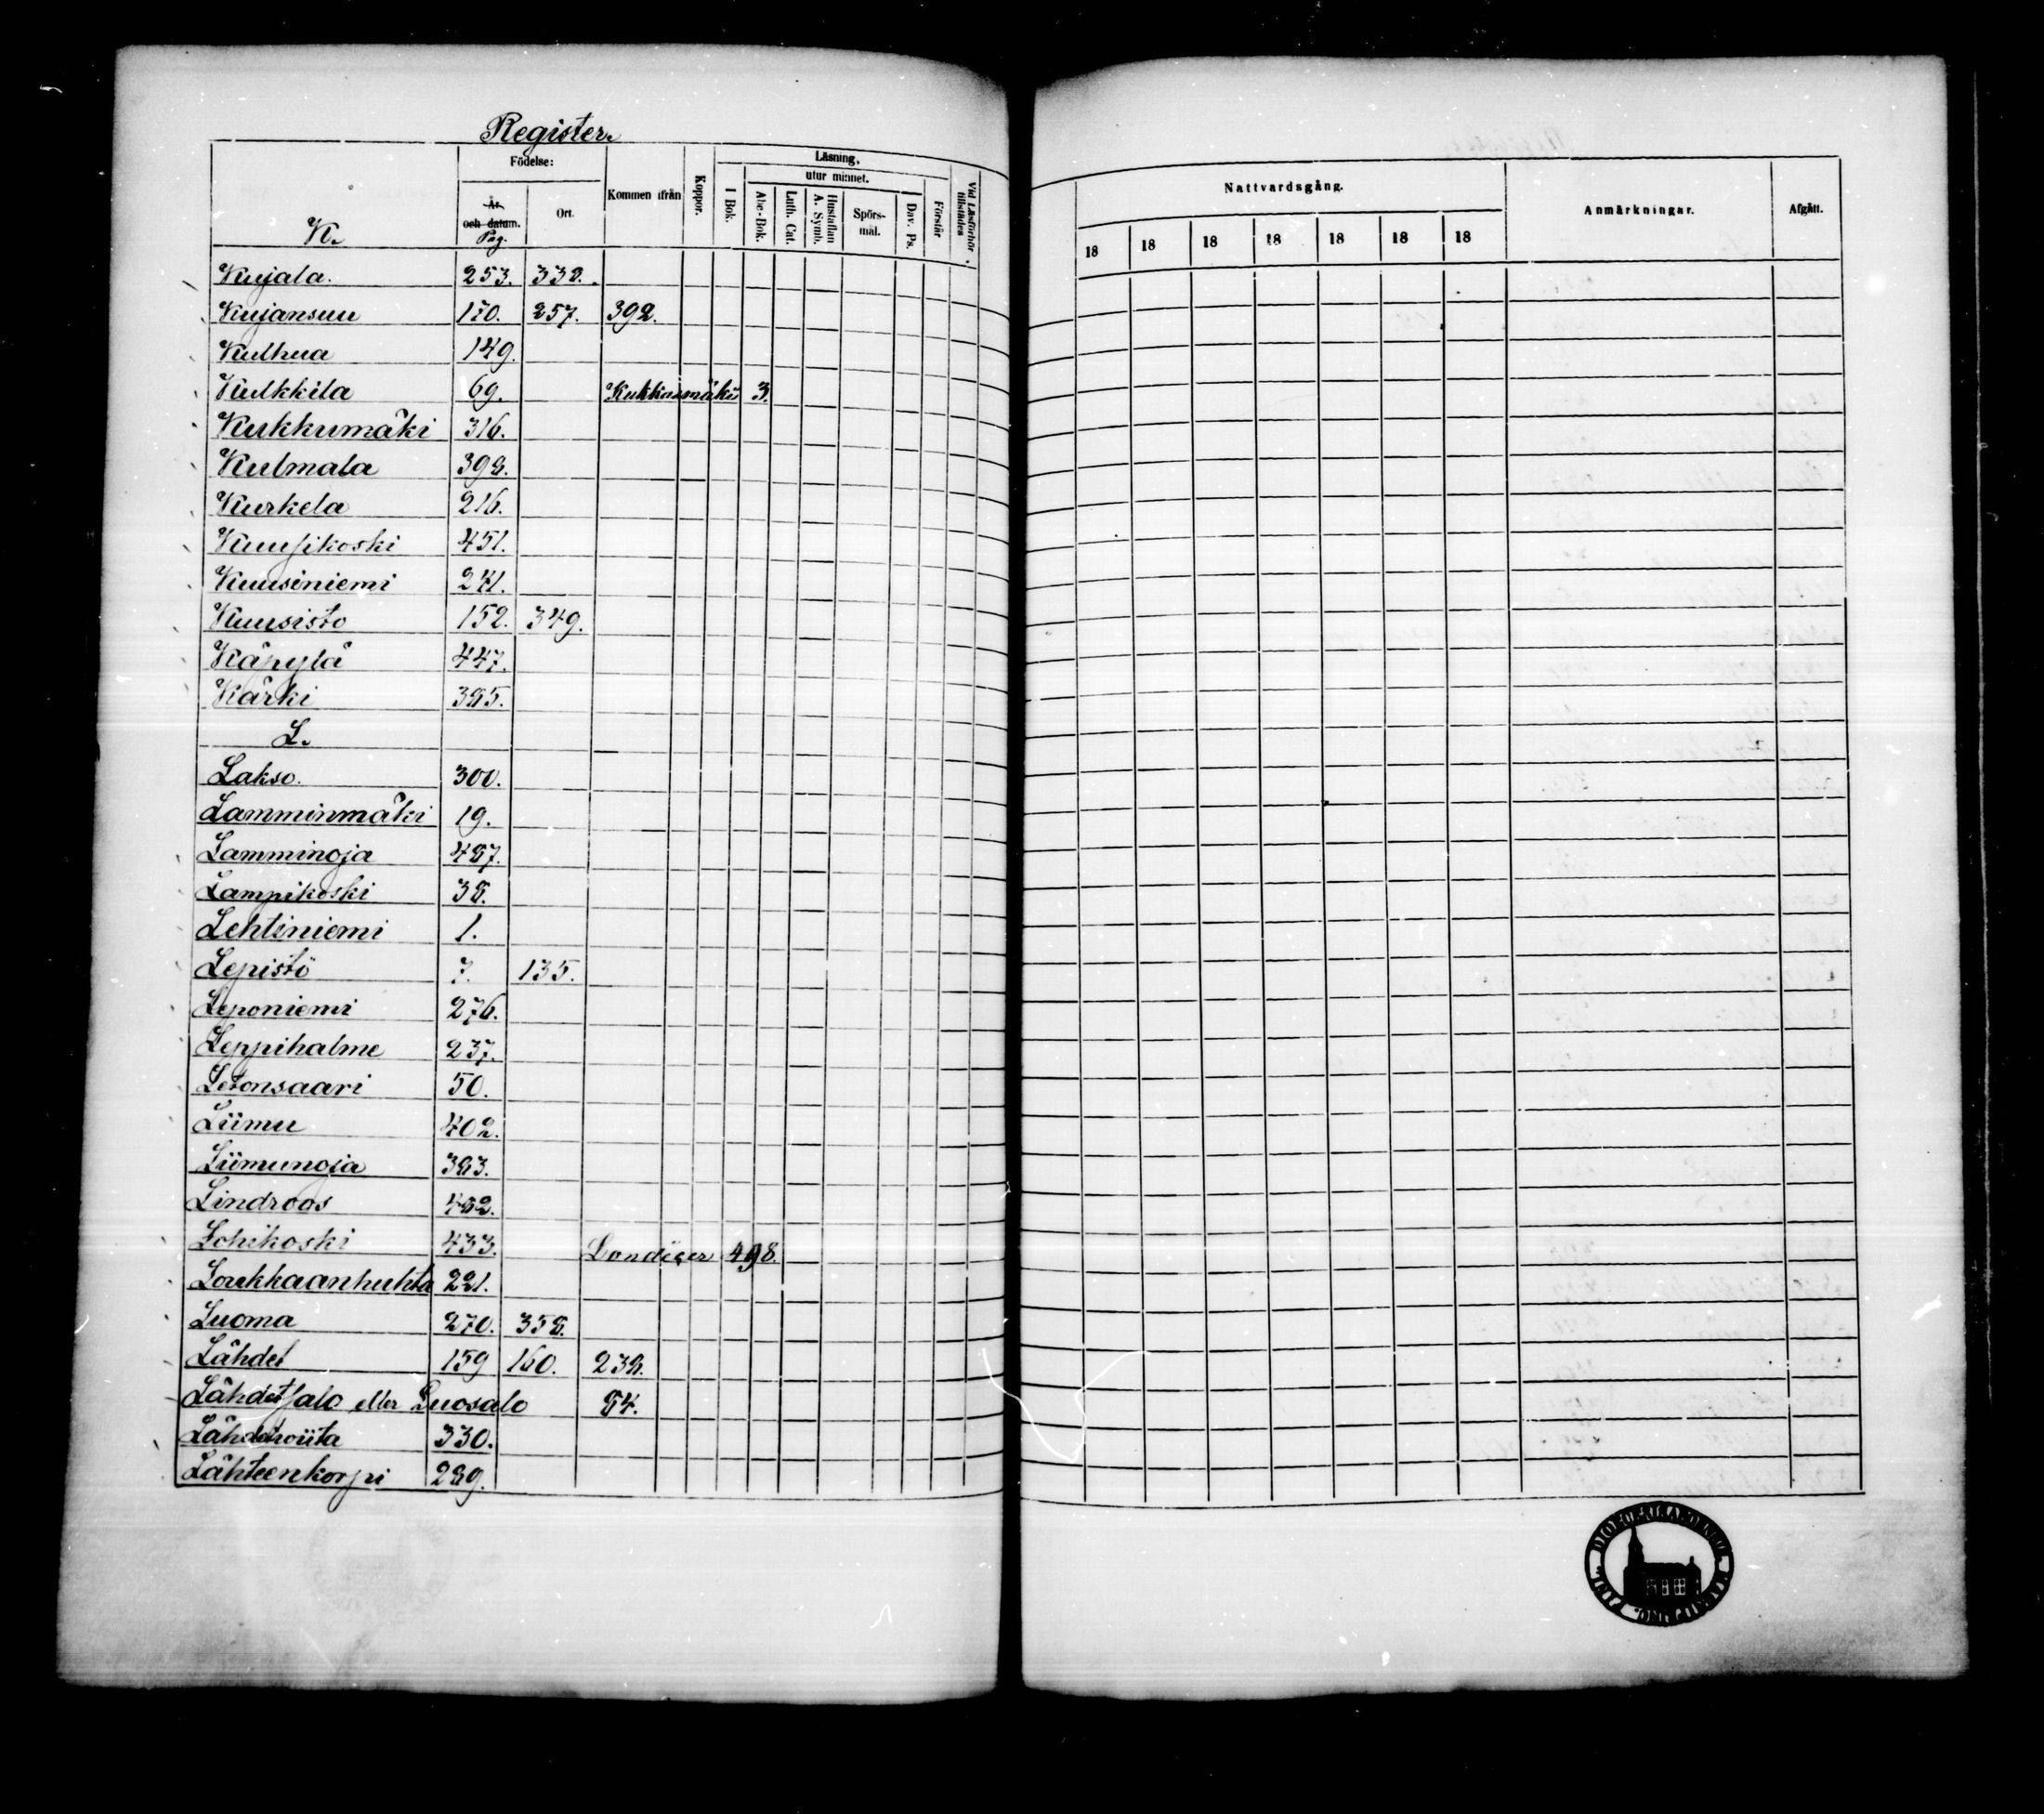 Register.
K. Födelse: Kommen ifrån Koppor. Läsning, Vid Läsförhör tillstädes
År och datum. Pag. Ort. I Bok. utur minnet. Förstår
Abc-Bok. Luth. Cat. Hustaflan A. Symb. Spörsmål. Dav. Ps.
Kujala. 253. 338.
Kujansuu 170. 257. 392.
Kulhua 149.
Kulkkila 69. Kukkasmäki 3.
Kukkumäki 316.
Kulmala 398.
Kurkela 216.
Kuusikoski 451.
Kuusiniemi 241.
Kuusisto 152. 349.
Käpylä 447.
Kärki 385.
L.
Lakso. 300.
Lamminmäki 19.
Lamminoja 487.
Lampikoski 38.
Lehtiniemi 1.
Lepistö 7. 135.
Leponiemi 276.
Leppihalme 237.
Letonsaari 50.
Liimu 402.
Liimunoja 383.
Lindroos 482.
Lohikoski 433. Londicer 498.
Loukkaanhuhta 221.
Luoma 270. 358.
Lähdet 159 160. 238.
Lähdetsalo eller Luosalo 84.
330.
Lähteenkorpi 289.
Nattvardsgång. Anmärkningar. Afgått.
18 18 18 18 18 18 18